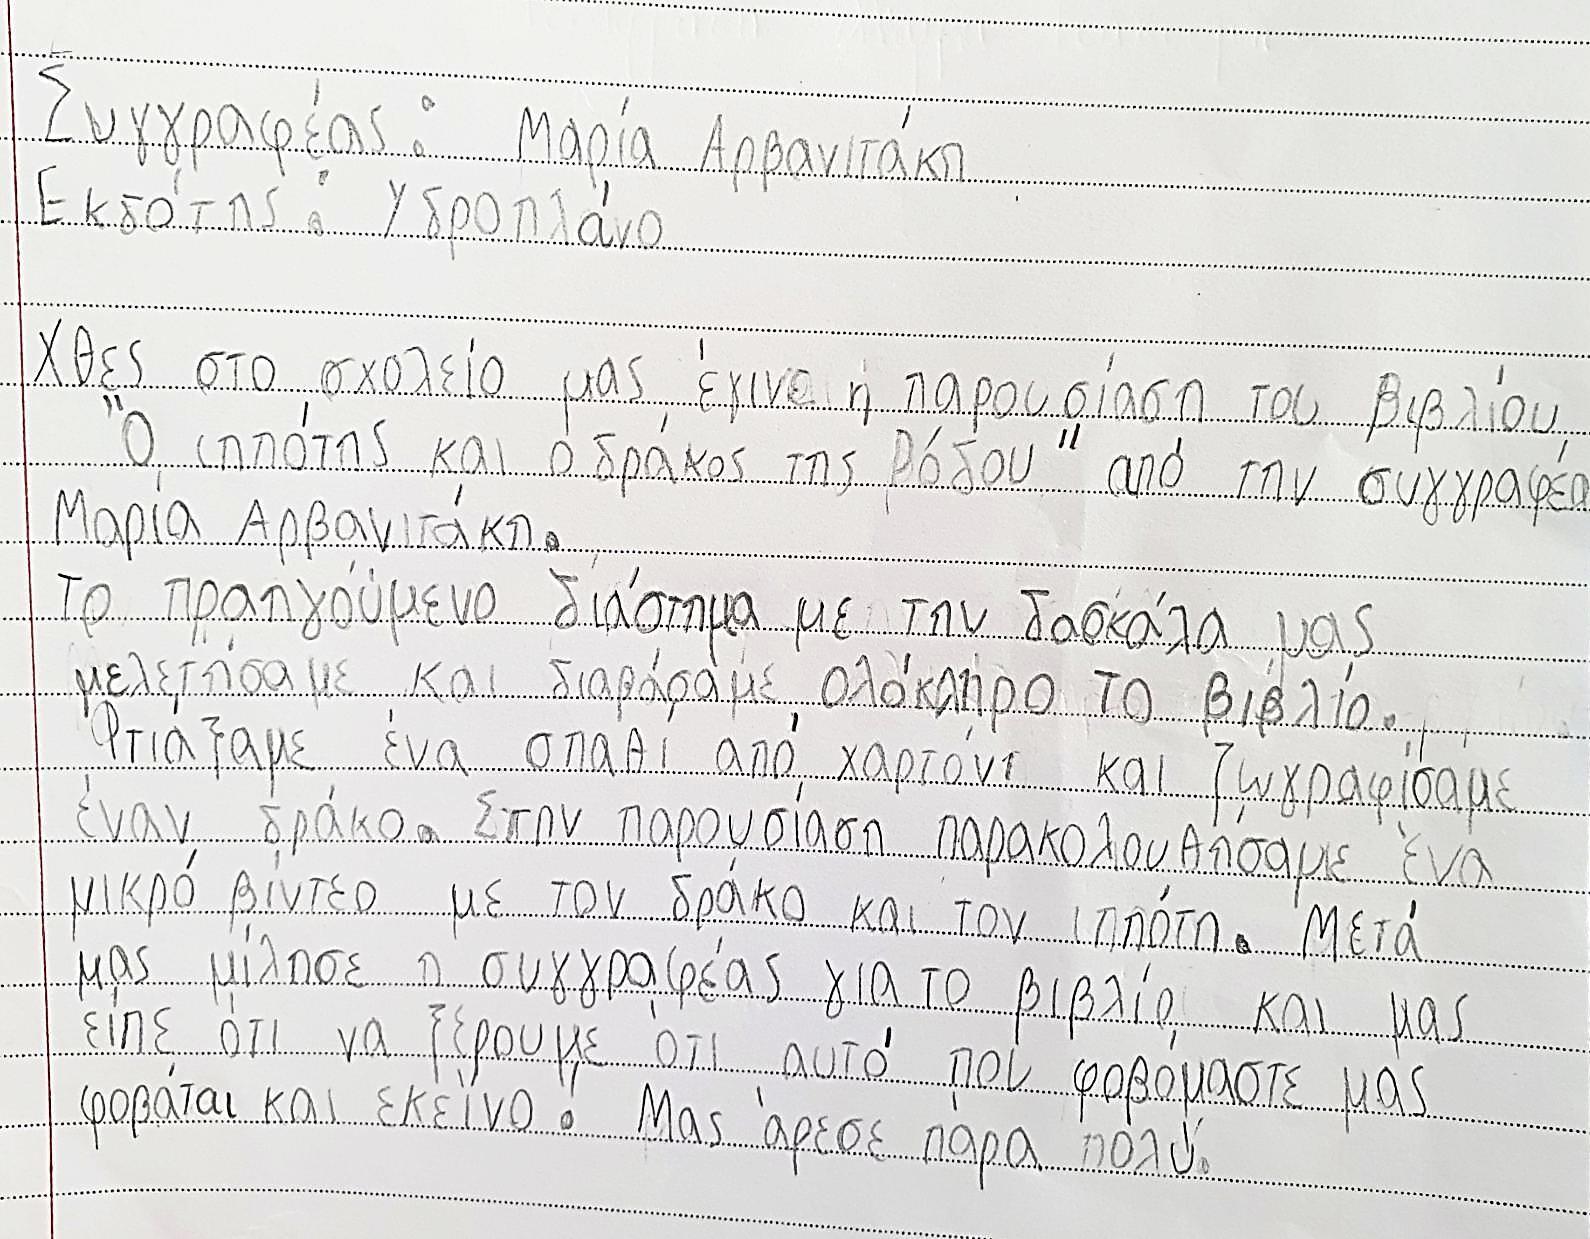 Συγγραφέας: Μαρία Αρβανιτάκη
Εκδότης: Υδροπλάνο
Χθες στο σχολείο μας έγινε ή παρουσίαση του βιβλίου
"Ο ιππότης και ο δράκος της Ρόδου" από την συγγραφέα
Μαρία Αρβανιτάκη.
Το πραηγούμενο διάστημα με την δασκάλα μας
μελετήσαμε και διαβάσαμε ολόκληρο το βιβλίο.
Φτιάξαμε ένα σπαθι από χαρτόνι και ζωγραφίσαμε
έναν δράκο. Στην παρουσίαση παρακολουθήσαμε ένα
μικρό βίντεο με τον δράκο και τον ιππότη. Μετά
μας μίλησε η συγγραφέας για το βιβλίο και μας
είπε ότι να ξέρουμε ότι αυτό που φοβόμαστε μας
φοβάται και εκείνο! Μας άρεσε πάρα πόλύ.